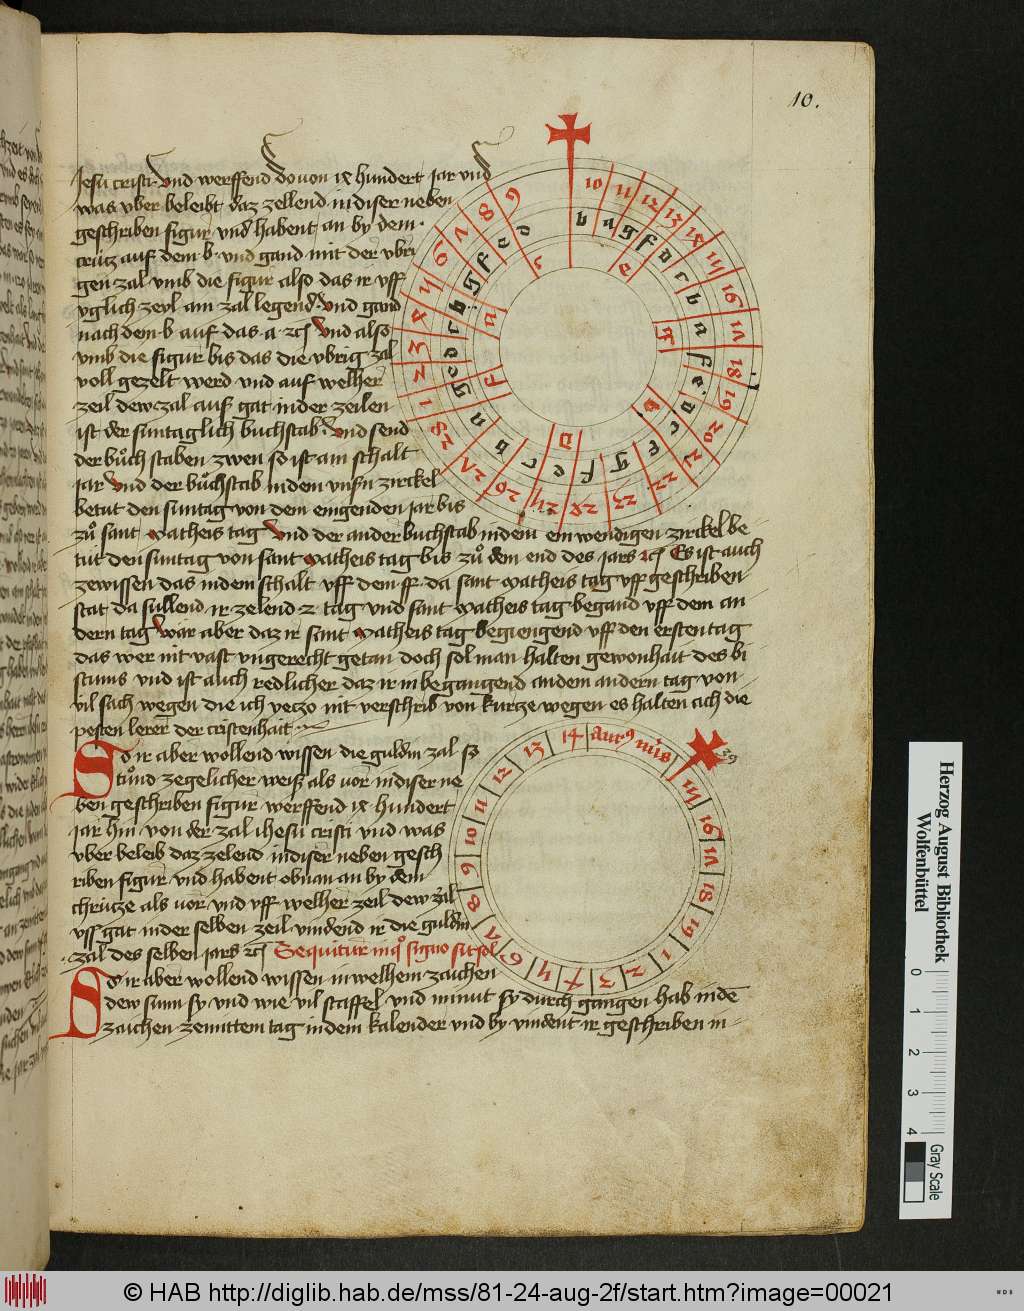 10.
Jesu cristi Vnd werffend dovon ix hundert jar vnd
was vber beleibt daz zellend in diser neben
geschriben figur vnd habent an by dem
crútz auf dem b vnd gand mit der vbri
gen zal vmb die figur also das ir vff
yglich zeyl ain zal legend Vnd gand
nach dem b auf das a Vnd also
vmb die figur bis das die vbrig zal
voll gezelt werd vnd auf welher
zeil dew zal auß gat in der zeilen
ist der suntaglich buchstab Vnd send
der bůchstaben zwen so ist ain schalt
jar Vnd der bůchstab in dem zirckel
betut den suntag von dem eingenden jar bis
zů sant Matheis tag Vnd der ander buchstab in dem einwendigen zirckel be
tut den suntag von sant Matheis tag bis zů dem end des jars Es ist auch
zewissen das in dem schalt vff dem ff da sant Matheis tag vff geschriben
stat da sullend ir zelend 2 tag vnd sant Matheis tag begand vff dem an
dern tag Wär aber daz ir sant Matheis tag begiengend vff den ersten tag
das wer nit vast vngerecht getan doch sol man halten gewonhait des bi
stums vnd ist auch redlicher daz ir in begangend an dem andern tag von
vil sach wegen die ich yeczo nit verschrib von kurcze wegen es halten auch die
pesten lerer der cristenhait
So ir aber wollend wissen die guldin zal so
tůnd zegelicher weiß als vor in diser ne
ben geschriben figur werffend ix hundert
jar hin von der zal ihesu cristi vnd was
vber beleib daz zelend in diser neben gesch
riben figur vnd habent obnan an by dem
chrücze als vor vnd vff welher zeil dew zal
vss gat in der selben zeil vindend ir die guldin
zal des selben jars Sequitur in quo signo sit sol
So ir aber wollend wissen in welhem zaichen
dew sunn sy vnd wie vil staffel vnd minut sy durch gangen hab in dē
zaichen zemittem tag in dem kalender vnd by vindent ir geschriben in
10 11 12 13 14 15 16 17 18 19 20 21 22 23 24 25 26 27 28 1 2 3 4 5 6 7 8 9
b a g f d c b a f e d c a g f e c b a g e d c b g f e d
e g b d f a c
aureus numerus
15 16 17 18 19 1 2 3 4 5 6 7 8 9 10 11 12 13 14
Herzog August Bibliothek
Wolfenbüttel
0 1 2 3 4
Gray Scale
© HAB http://diglib.hab.de/mss/81-24-aug-2f/start.htm?image=00021